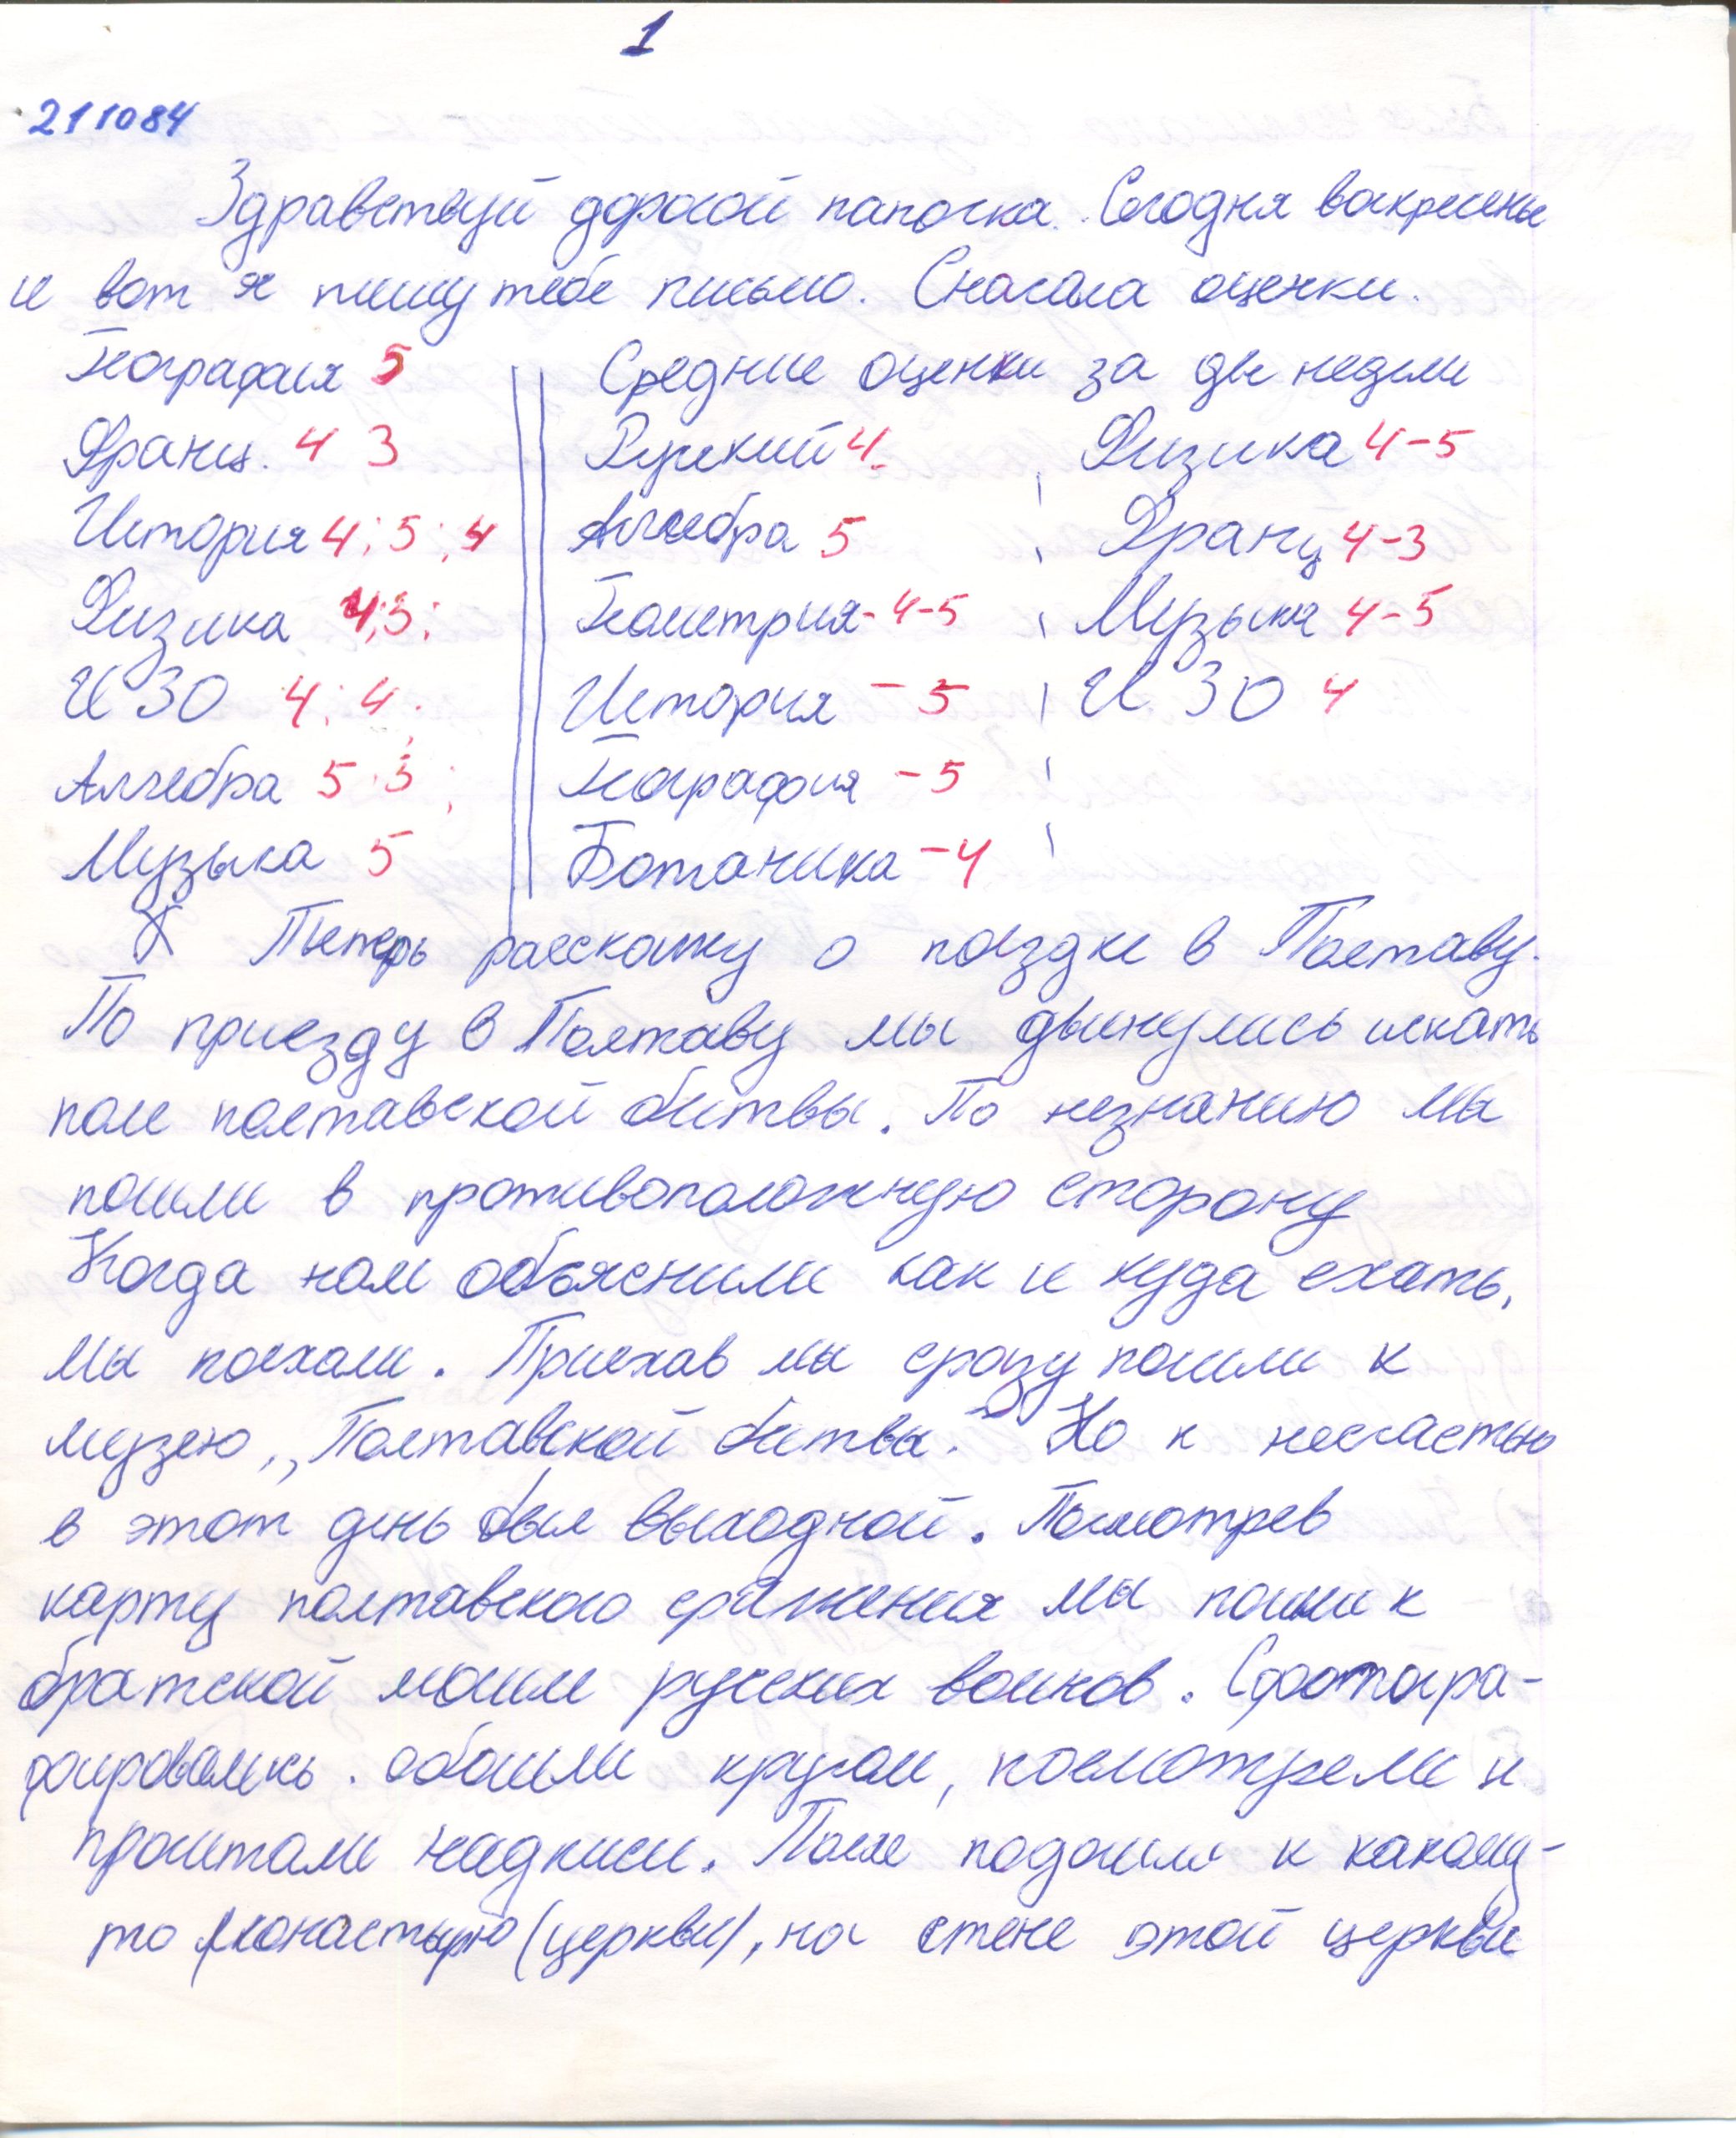 1
211084
Здравствуй дорогой папочка. Сегодня воскресенье
и вот я пишу тебе письмо. Сначала оценки.
География 5 Средние оценки за две недели
Франц. 4 3 Русский 4. Физика 4-5
История 4; 5; 4 Алгебра 5 Франц 4-3
Физика 4; 5; Геометрия - 4-5 Музыка 4-5
ИЗО 4; 4; История - 5 ИЗО 4
Алгебра 5; 5; География - 5
Музыка 5 Ботаника - 4
Теперь расскажу о поездке в Полтаву.
По приезду в Полтаву мы двинулись искать
поле полтавской битвы. По незнанию мы
пошли в противоположную сторону
Когда нам объяснили как и куда ехать,
мы поехали. Приехав мы сразу пошли к
музею „Полтавской битвы." Но к несчастью
в этот день был выходной. Посмотрев
карту полтавского сражения мы пошли к
братской могиле русских воинов. Сфотогра-
фировались. обошли кругом, посмотрели и
прочитали надписи. После подошли к какому-
то монастырю (церкви), на стене этой церкви